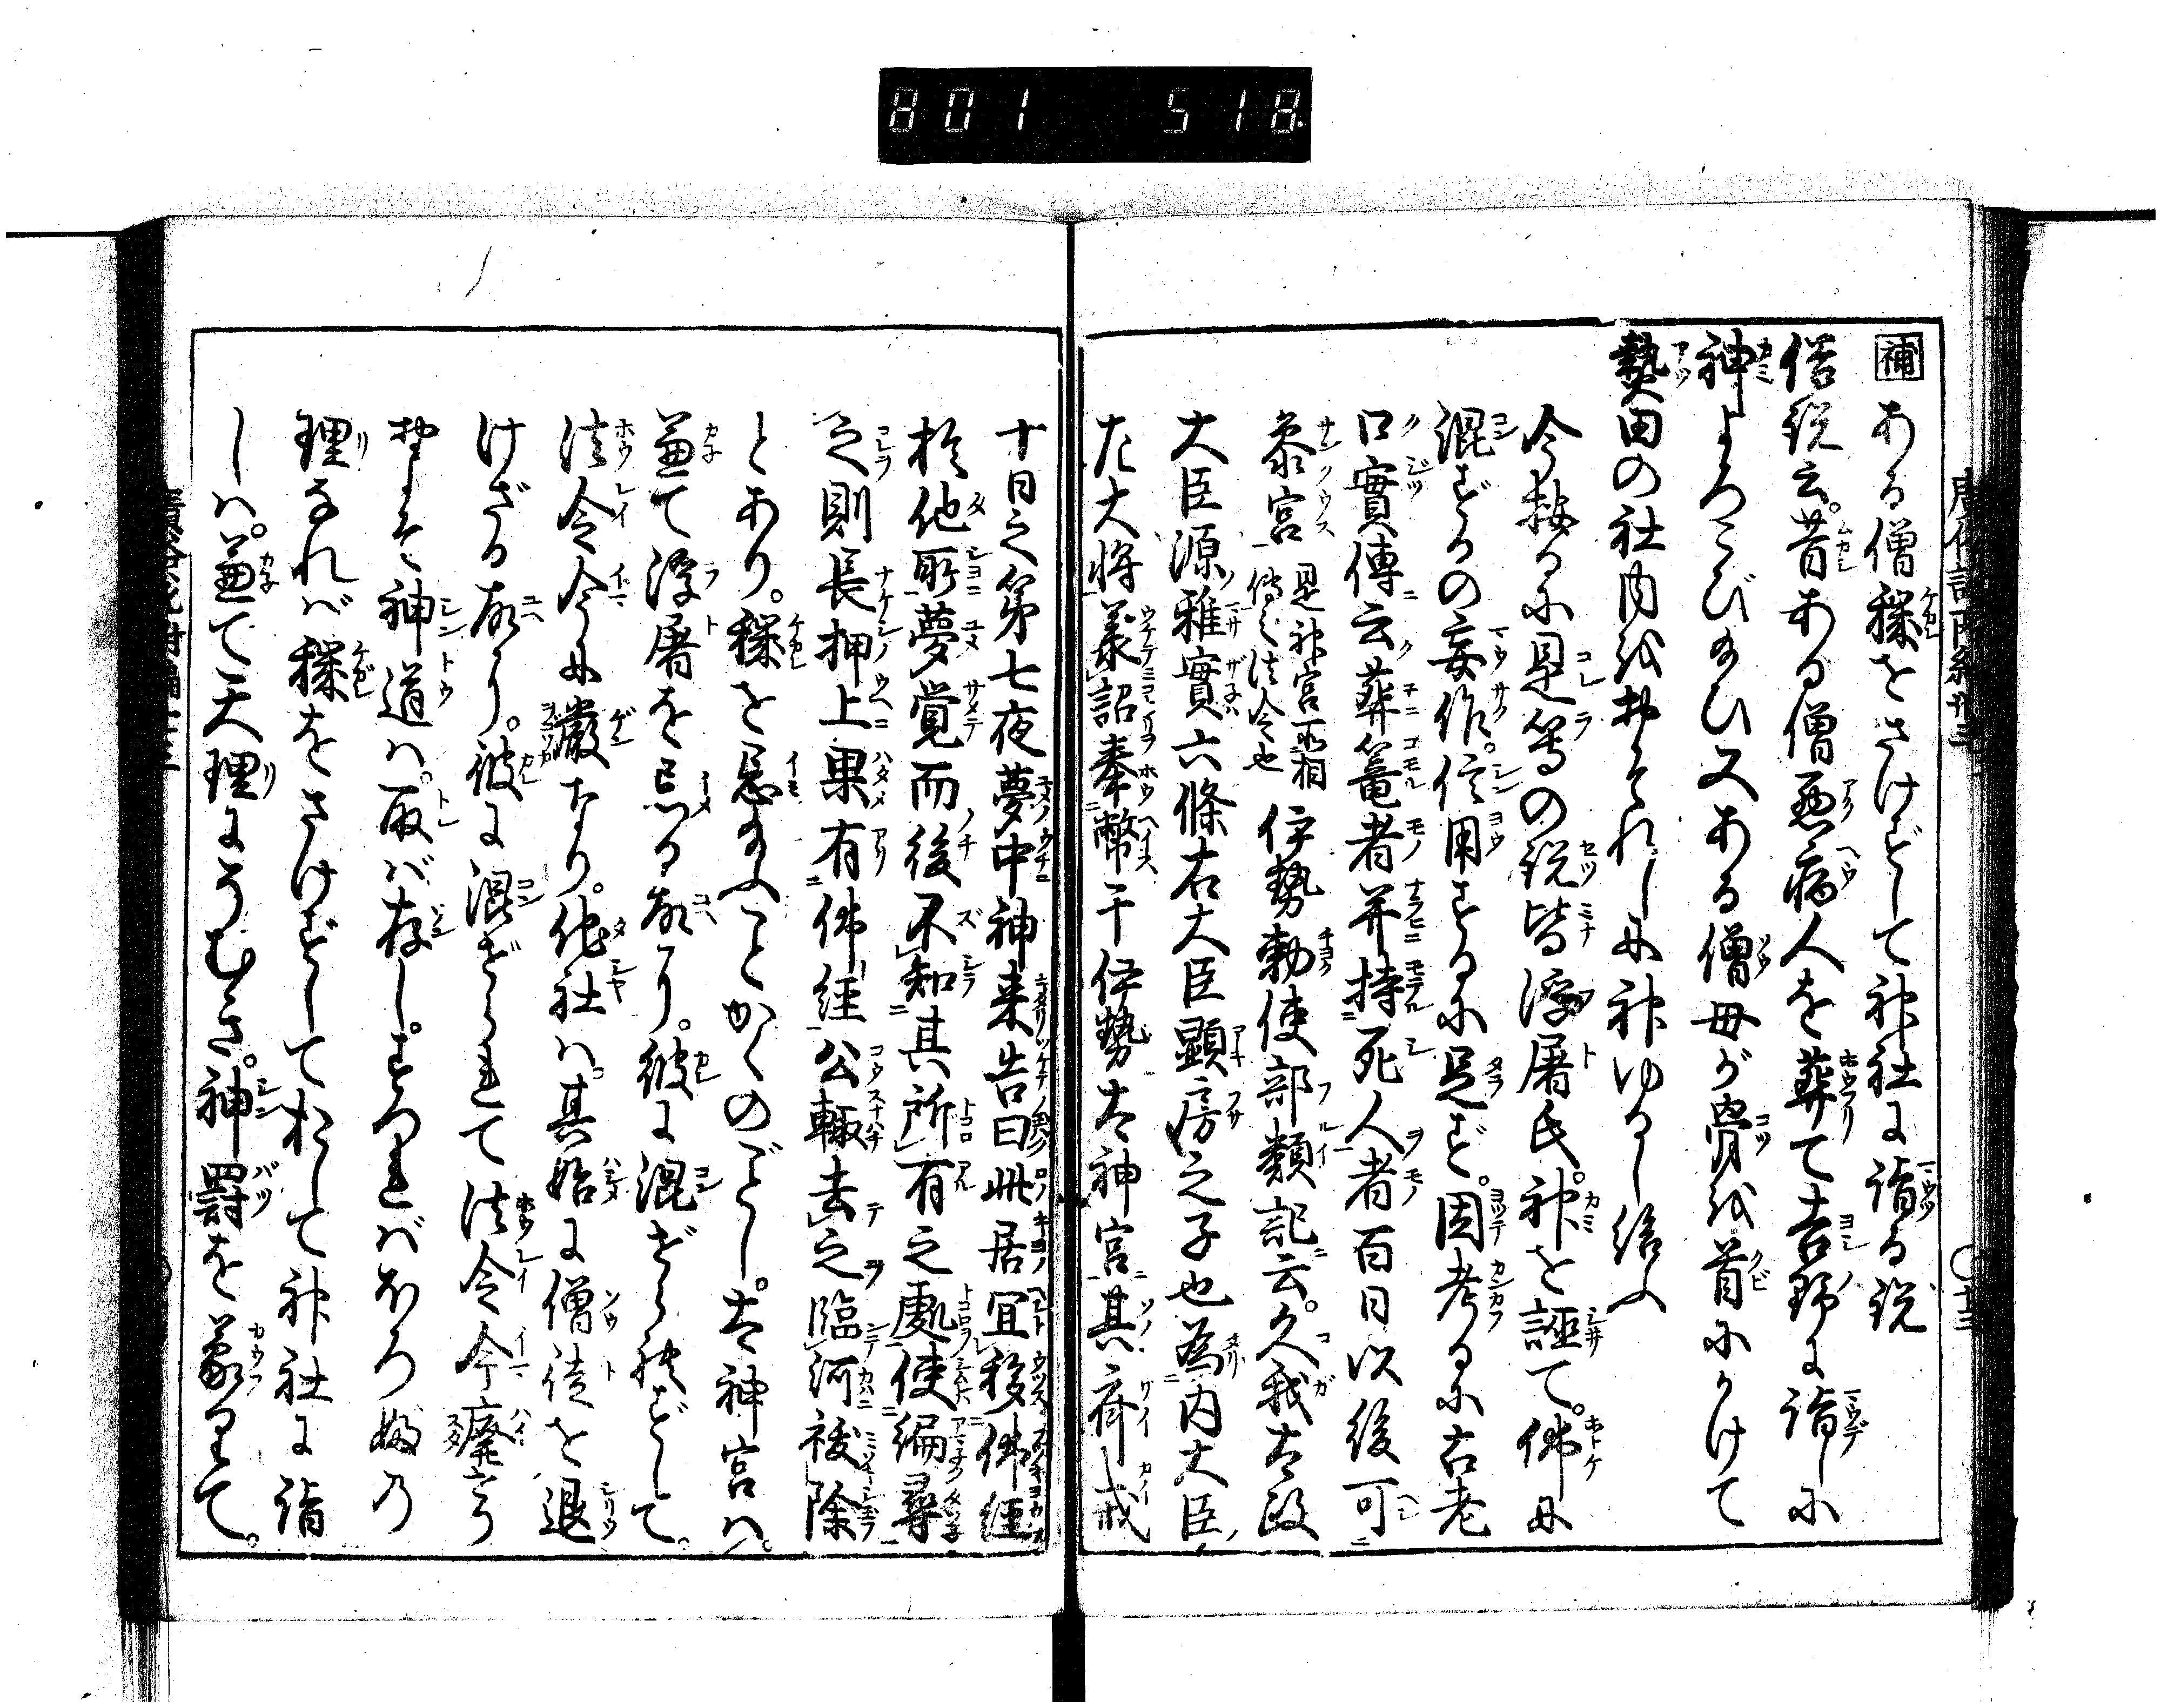 801 518
補 ある僧穢をさけずして神社に詣る説
俗説云。昔ある僧悪病人を葬て吉野に詣しに
神よろこび給ひ又ある僧母が骨を首にかけて
熱田の社内をおそれしに神ゆるし給ふ
今按るに是等の説皆浮屠氏。神を誣て。佛に
混ずるの妄作。信用するに足ず。因考るに古老
口實傳云葬篭者并持死人者百日以後可
参宮 是神宮不相傳之法令也 伊勢勅使部類記云。久我太政
大臣源雅實六條右大臣顕房之子也為内大臣
左大将義詔奉幣于伊勢太神宮其齋戒
十日之第七夜夢中神来告曰此居宜移佛經
於他所夢覚而後不知其所有之處使編尋
之則長押上果有佛経公輙去之臨河祓除
とあり。穢を忌給ふことかくのごとし。太神宮は。
兼て浮屠を忌る故なり。彼に混ぜられずして。
法令今に厳なり。他社は。其始に僧徒を退
けざる故なり。彼に混ぜられて法令今廃たり
そ神道は。取ば存し。すつればほろぶの
理なれば穢をさけずしておして神社に詣
しは。兼て天理にそむき。神罰を蒙りて。